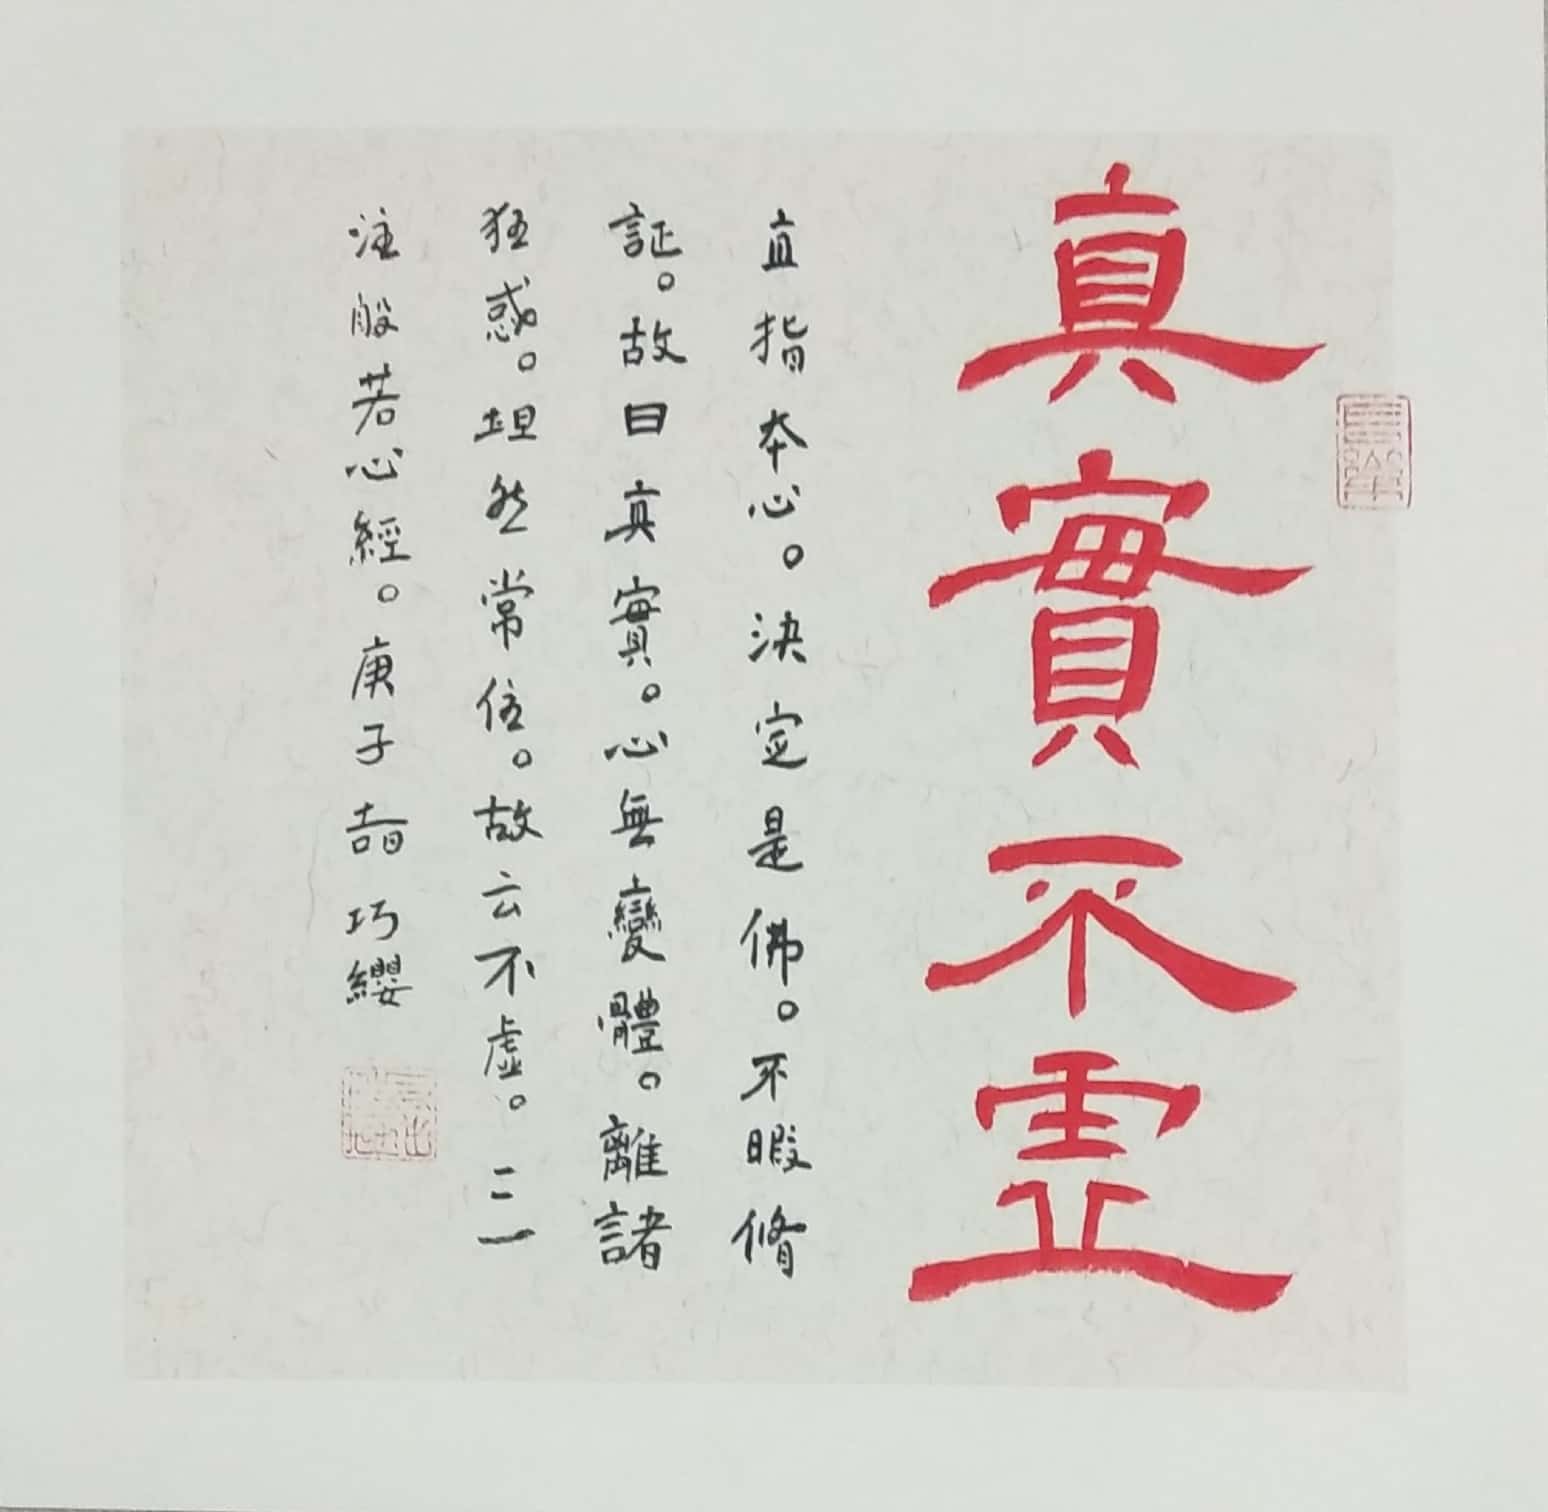 真實不虛
直指本心。決定是佛。不暇脩
証。故曰真實。心無變體。離諸
狂惑。坦然常住。故云不虛。三
注般若心經。庚子吉日巧纓